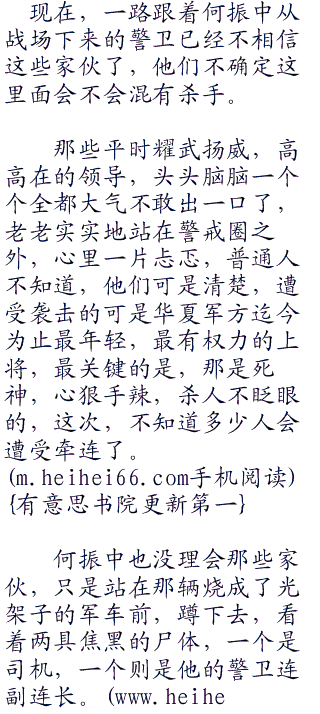 现在，一路跟着何振中从
战场下来的警卫已经不相信
这些家伙了，他们不确定这
里面会不会混有杀手。
那些平时耀武扬威，高
高在的领导，头头脑脑一个
个全都大气不敢出一口了，
老老实实地站在警戒圈之
外，心里一片忐忑，普通人
不知道，他们可是清楚，遭
受袭击的可是华夏军方迄今
为止最年轻，最有权力的上
将，最关键的是，那是死
神，心狠手辣，杀人不眨眼
的，这次，不知道多少人会
遭受牵连了。
(m.heihei66.com手机阅读)
{有意思书院更新第一}
何振中也没理会那些家
伙，只是站在那辆烧成了光
架子的军车前，蹲下去，看
着两具焦黑的尸体，一个是
司机，一个则是他的警卫连
副连长。(www.heihe